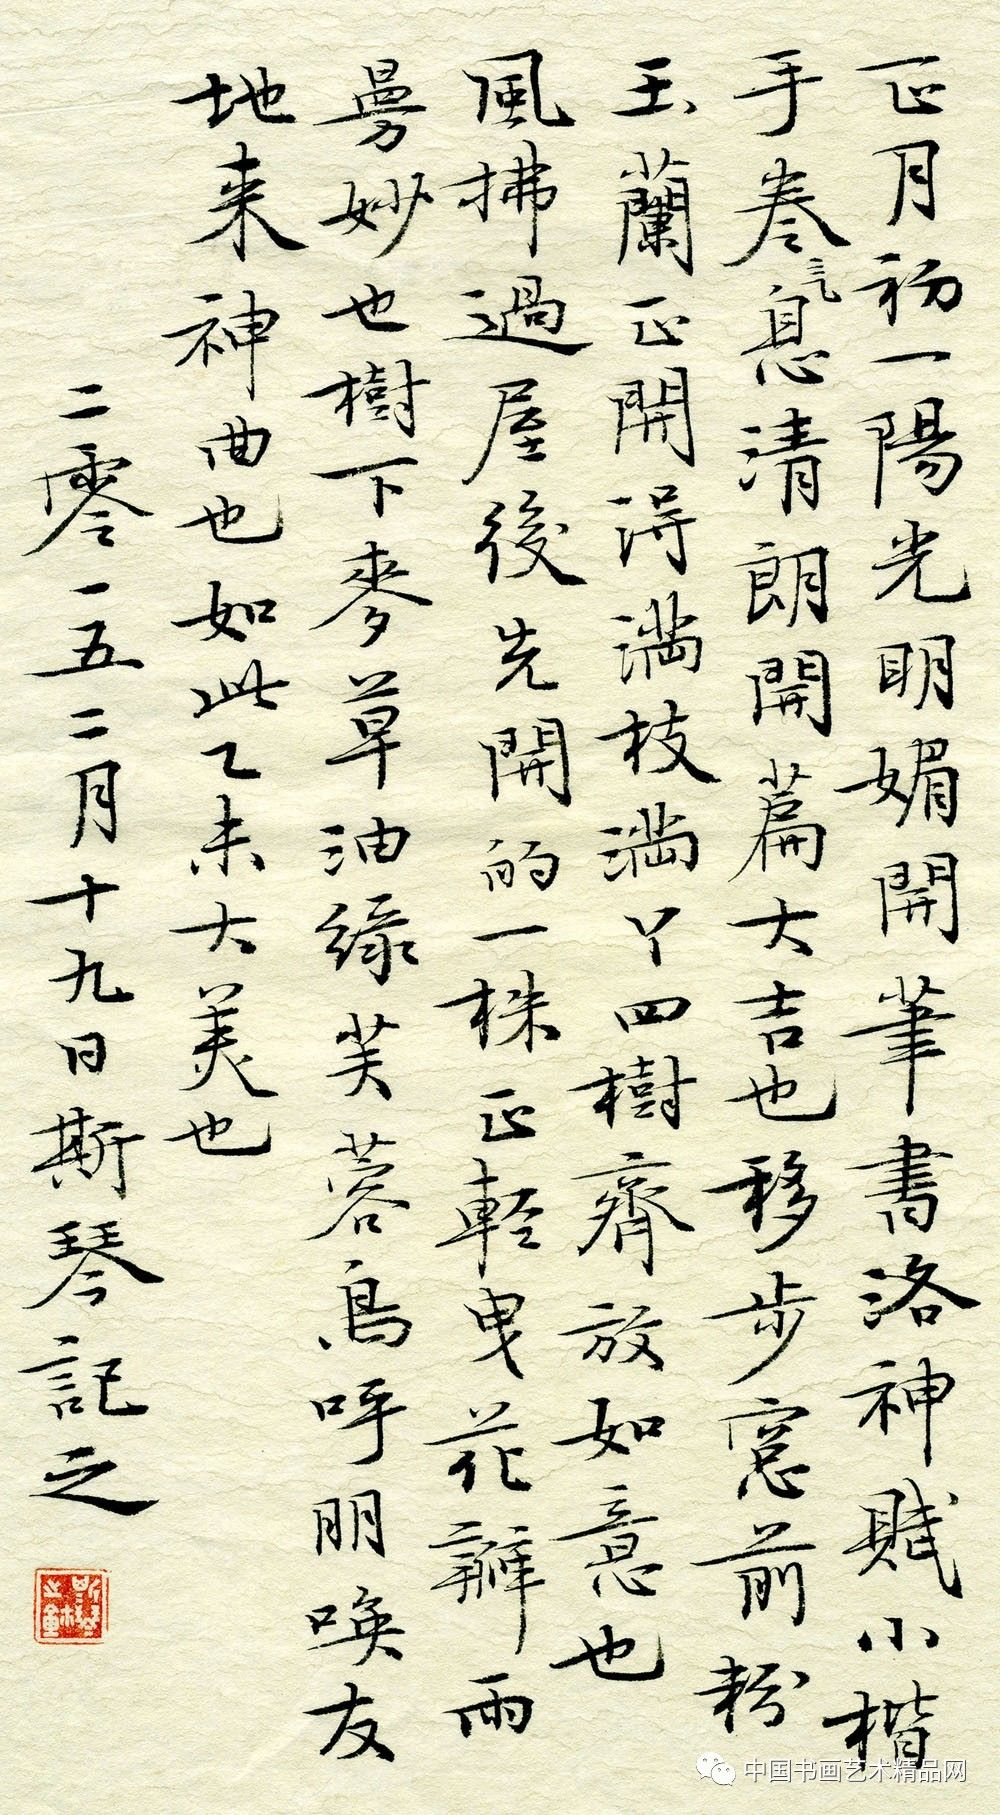 正月初一陽光明媚開筆書洛神賦小楷
手卷氣息清朗開篇大吉也移步窓前粉
玉蘭正開得滿枝滿丫四樹齊放如意也
風拂過屋後先開的一株正輕曳花瓣雨
曼妙也樹下麥草油綠芙蓉鳥呼朋喚友
地来神曲也如此乙未大美也
二零一五二月十九日斯琴記之
中国书画艺术精品网